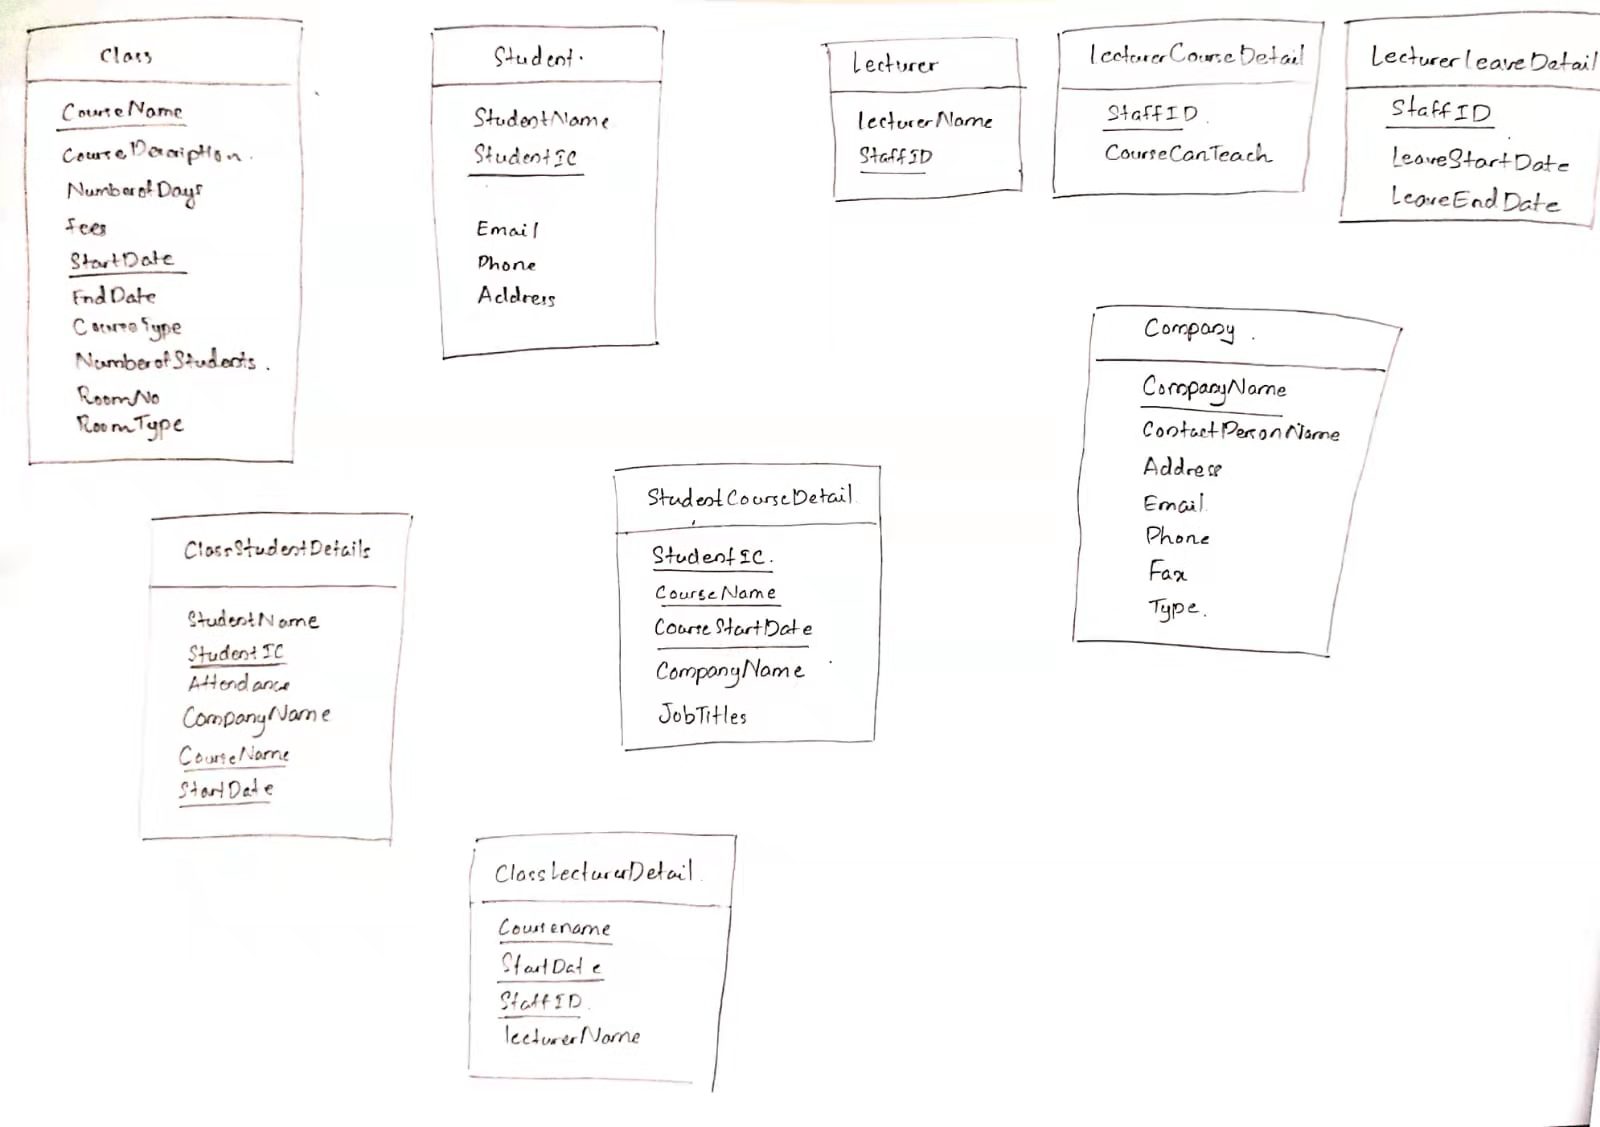 Class
CourseName
CourseDescription.
NumberofDays
Fees
StartDate
EndDate
CourseType
NumberofStudents.
RoomNo
RoomType
Student.
StudentName
StudentIC
Email
Phone
Address
Lecturer
LecturerName
StaffID
LecturerCourseDetail
StaffID.
CourseCanTeach
LecturerLeaveDetail
StaffID
LeaveStartDate
LeaveEndDate
Company.
CompanyName
ContactPersonName
Address
Email.
Phone
Fax
Type.
ClassStudentDetails
StudentName
StudentIC
Attendance
CompanyName
CourseName
StartDate
StudentCourseDetail.
StudentIC.
CourseName
CourseStartDate
CompanyName
JobTitles
ClassLecturerDetail.
Coursename
StartDate
StaffID.
lecturerName